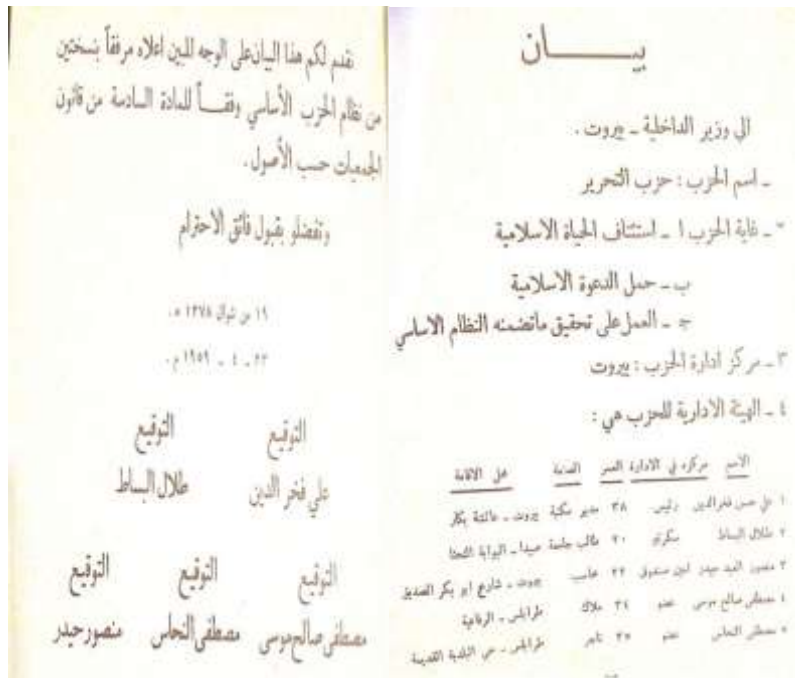 بيــــــان
الي وزير الداخلية ـ بيروت .
ـ اسم الحزب : حزب التحرير
ـ غاية الحزب ا ـ استئناف الحياة الاسلامية
ب ـ حمل الدعوة الاسلامية
ج ـ العمل على تحقيق ماتضمنه النظام الاساسي
٣ ـ مركز ادارة الحزب : بيروت
٤ ـ الهيئة الادارية للحزب هي :
الاسم مركزه في الادارة العمر الصنعة محل الاقامة
١ علي حسن فخرالدين رئيس ٣٨ مدير مكتبة بيروت ـ عائشة بكار
٢ طلال البساط سكرتير ٢٠ طالب جامعة صيدا ـ البوابة
٣ منصور حيدر امين صندوق ٢٢ محاسب بيروت ـ شارع ابو بكر الصديق
٤ مصطفى صالح موسى عضو ٣٤ ملاك طرابلس ـ الرفاعية
٥ مصطفى النحاس عضو ٣٥ تاجر طرابلس ـ حي البلدية القديمة
نقدم لكم هذا البيان على الوجه المبين اعلاه مرفقاً بنسختين
من نظام الحزب الأساسي وفقـــاً للمادة السادسة من قانون
الجمعيات حسب الأصول .
وتفضلو بقبول فائق الاحترام
١٩ من شوال ١٣٧٨ ه .
٢٣ ـ ٤ ـ ١٩٥٩ م .
التوقيع التوقيع
علي فخر الدين طلال البساط
التوقيع التوقيع التوقيع
مصطفى صالح موسى مصطفى النحاس منصور حيدر